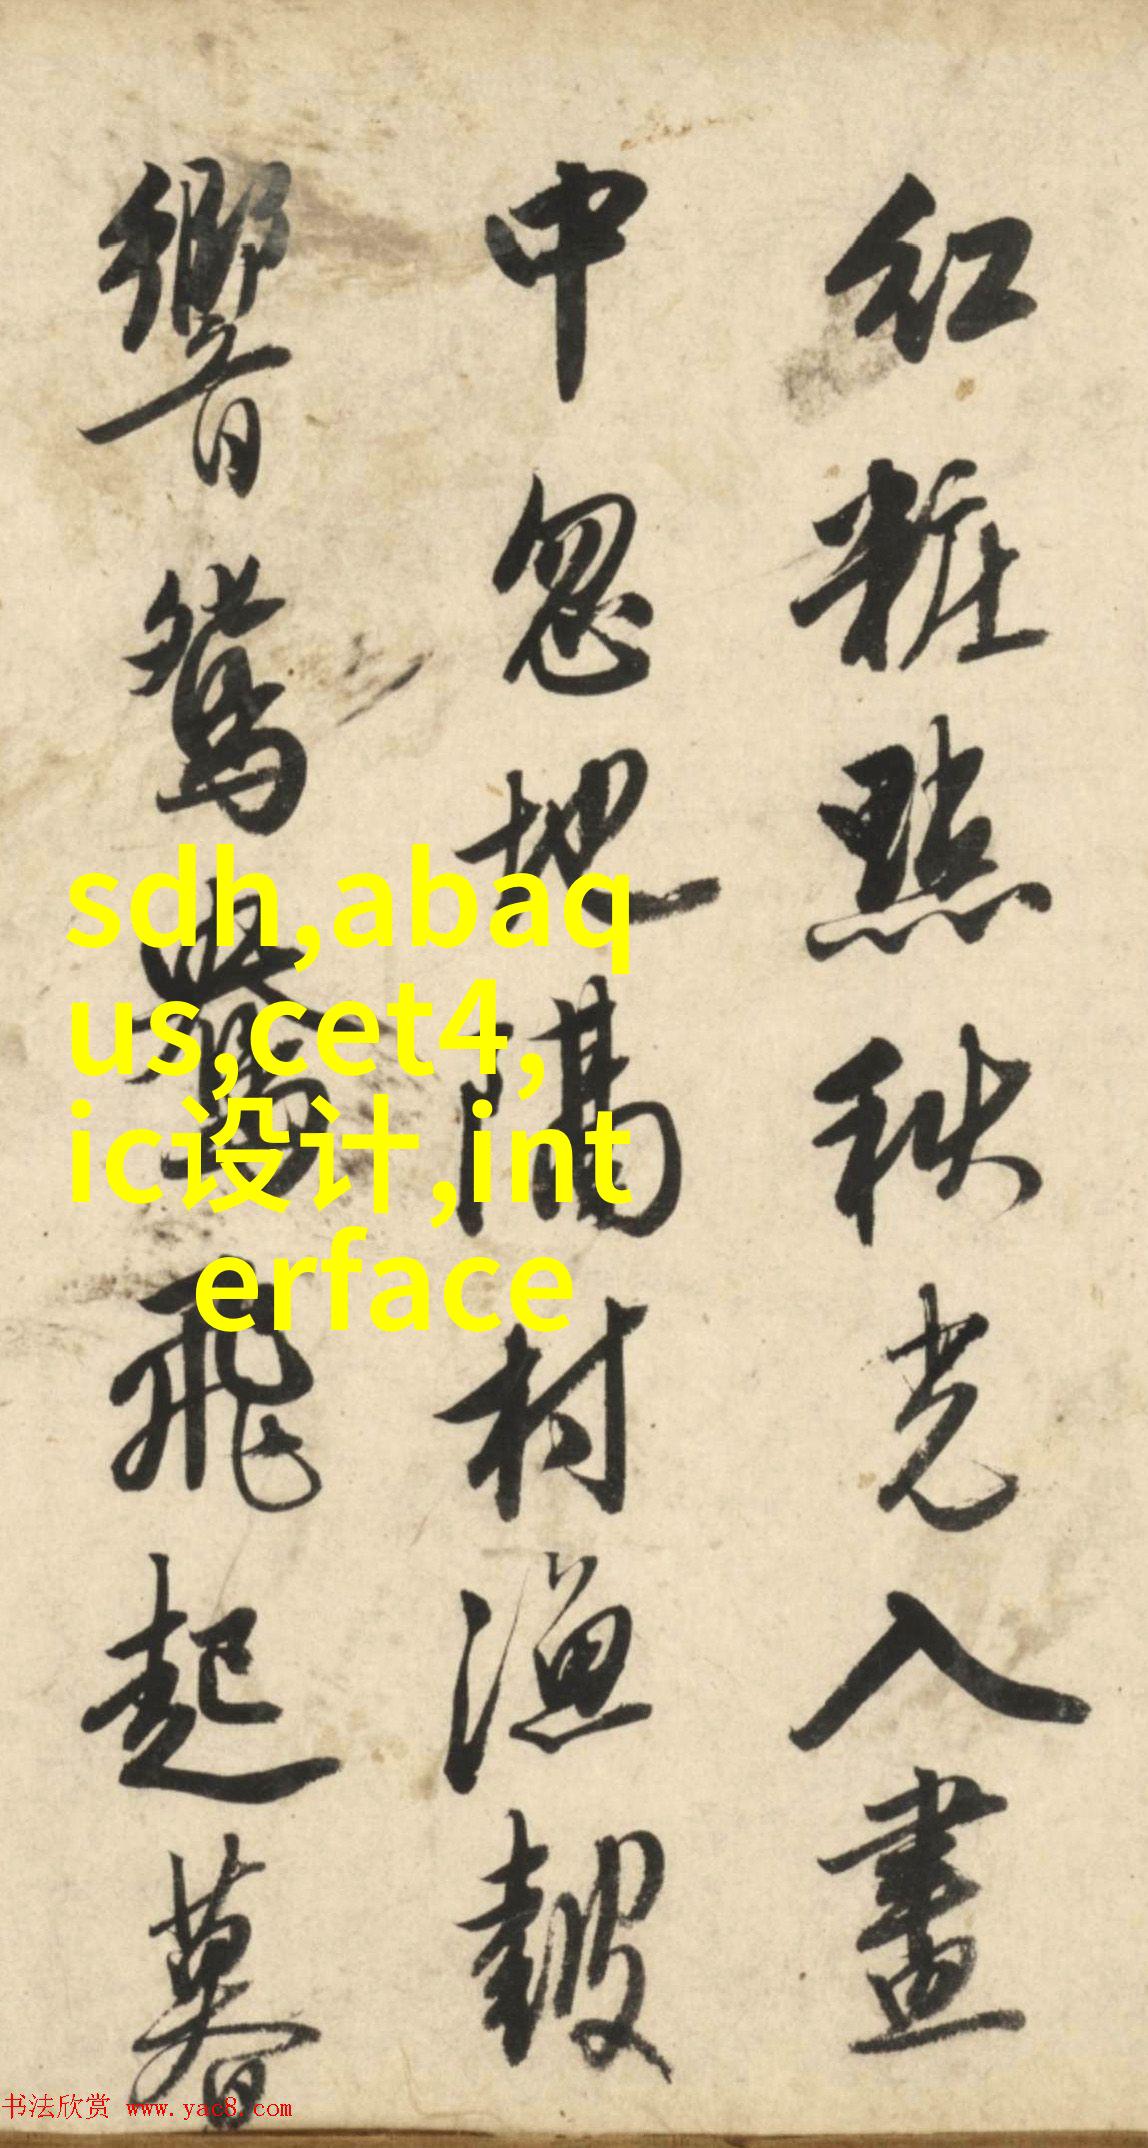 红粧照秋光入畫
中忽地隔村漁鼓
響鴛鴦飛起暮
sdh,abaq
us,cet4,
ic设计,int
erface
书法欣赏 www.yac8.com